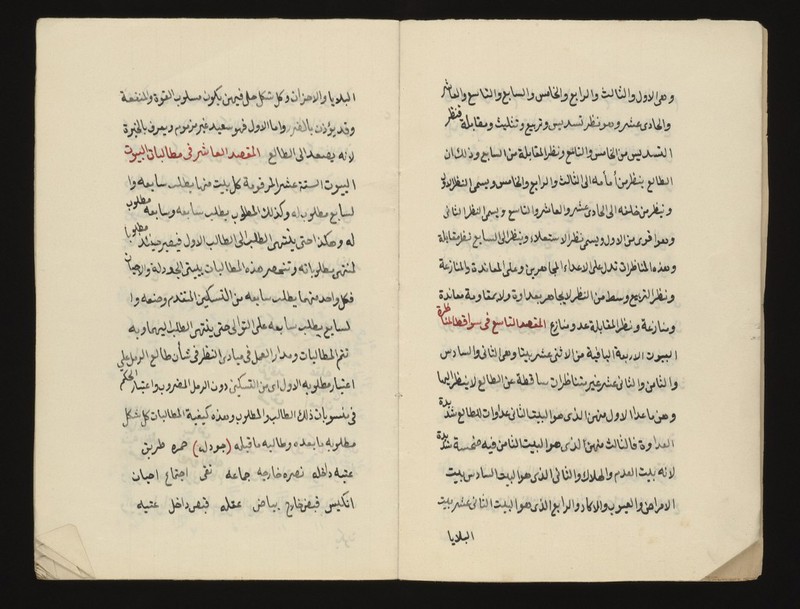 وهى الاول والثالث والرابع والخامس والسابع والتاسع والعاشر
والحادى عشر وهو نظر تسديس وتربيع وتثليث ومقابلة فنظر
التسديس من الخامس والتاسع ونظر المقابلة من السابع وذلك ان
الطالع ينظر من أمامه الى الثالث والرابع والخامس ويسمى النظر الاول
وينظر من خلفه الى الحادى عشر والعاشر والتاسع ويسمى النظر الثانى
وهو اقوى من الاول ويسمى نظر الاستعلاء وينظر الى السابع نظر مقابلة
وهذه المناظرات تدل على الاعداء المجاهرين وعلى المعاندة والمنازعة
ونظر التربيع وسط من النظر لا يجاهر بعداوة ولا بمقاومة معاندة
ومنازعة ونظر المقابلة عدو منازع المقصد التاسع فى سواقط المناظرة
البيوت الاربعة الباقية من الاثنى عشر بيتا وهى الثانى والسادس
والثامن والثانى عشر غير متناظرات ساقطة عن الطالع لا ينظر اليها
وهن ما عدا الاول منهن الذى هو البيت الثانى عداوات للطالع شديدة
العداوة فالثالث منهن الذى هو البيت الثامن فيه نحسة شديدة
لانه بيت العدم والهلاك والثانى الذى هو البيت السادس بيت
الامراض والعيوب والانكاد والرابع الذى هو البيت الثانى عشر بيت
البلايا
البلايا والاحزان وكل شكل حل فيهن يكون مسلوب القوة والمنفعة
وقد يؤذن بالضرر واما الاول فهو سعيد غير مذموم ويعرف بالخيرة
لانه يصعد الى الطالع المقصد العاشر فى مطالبات البيوت
البيوت الستة عشر المرقومة كل بيت منها يطلب سابعه وا
لسابع مطلوب له وكذلك المطلوب يطلب سابعه وسابعه مطلوب
له وهكذا حتى ينتهى الطلب الى الطالب الاول فيصير حينئذ مطلوبا
لمنتهى مطلوباته وتنحصر هذه المطالبات ببيتى الجودلة والاحيان
فكل واحد منهما يطلب سابعه من التسكين المتقدم وضعه وا
لسابع يطلب سابعه على التوالى حتى ينتهى الطلب اليهما وبه
تتم المطالبات ومدار العمل فى مبادى النظر فى شأن طالع الرمل على
اعتبار مطلوبه الاول اى من التسكين دون الرمل المضروب واعتبار الحكم
فى منسوبات ذلك الطالب والمطلوب وهذه كيفية المطالبات كل شكل
مطلوبه ما بعده وطالبه ما قبله (جودله) حمره طريق
عتبه داخله نصره خارجه جماعه نقى اجتماع احيان
انكيس قبض خارج بياض عقله قبض داخل عتبه